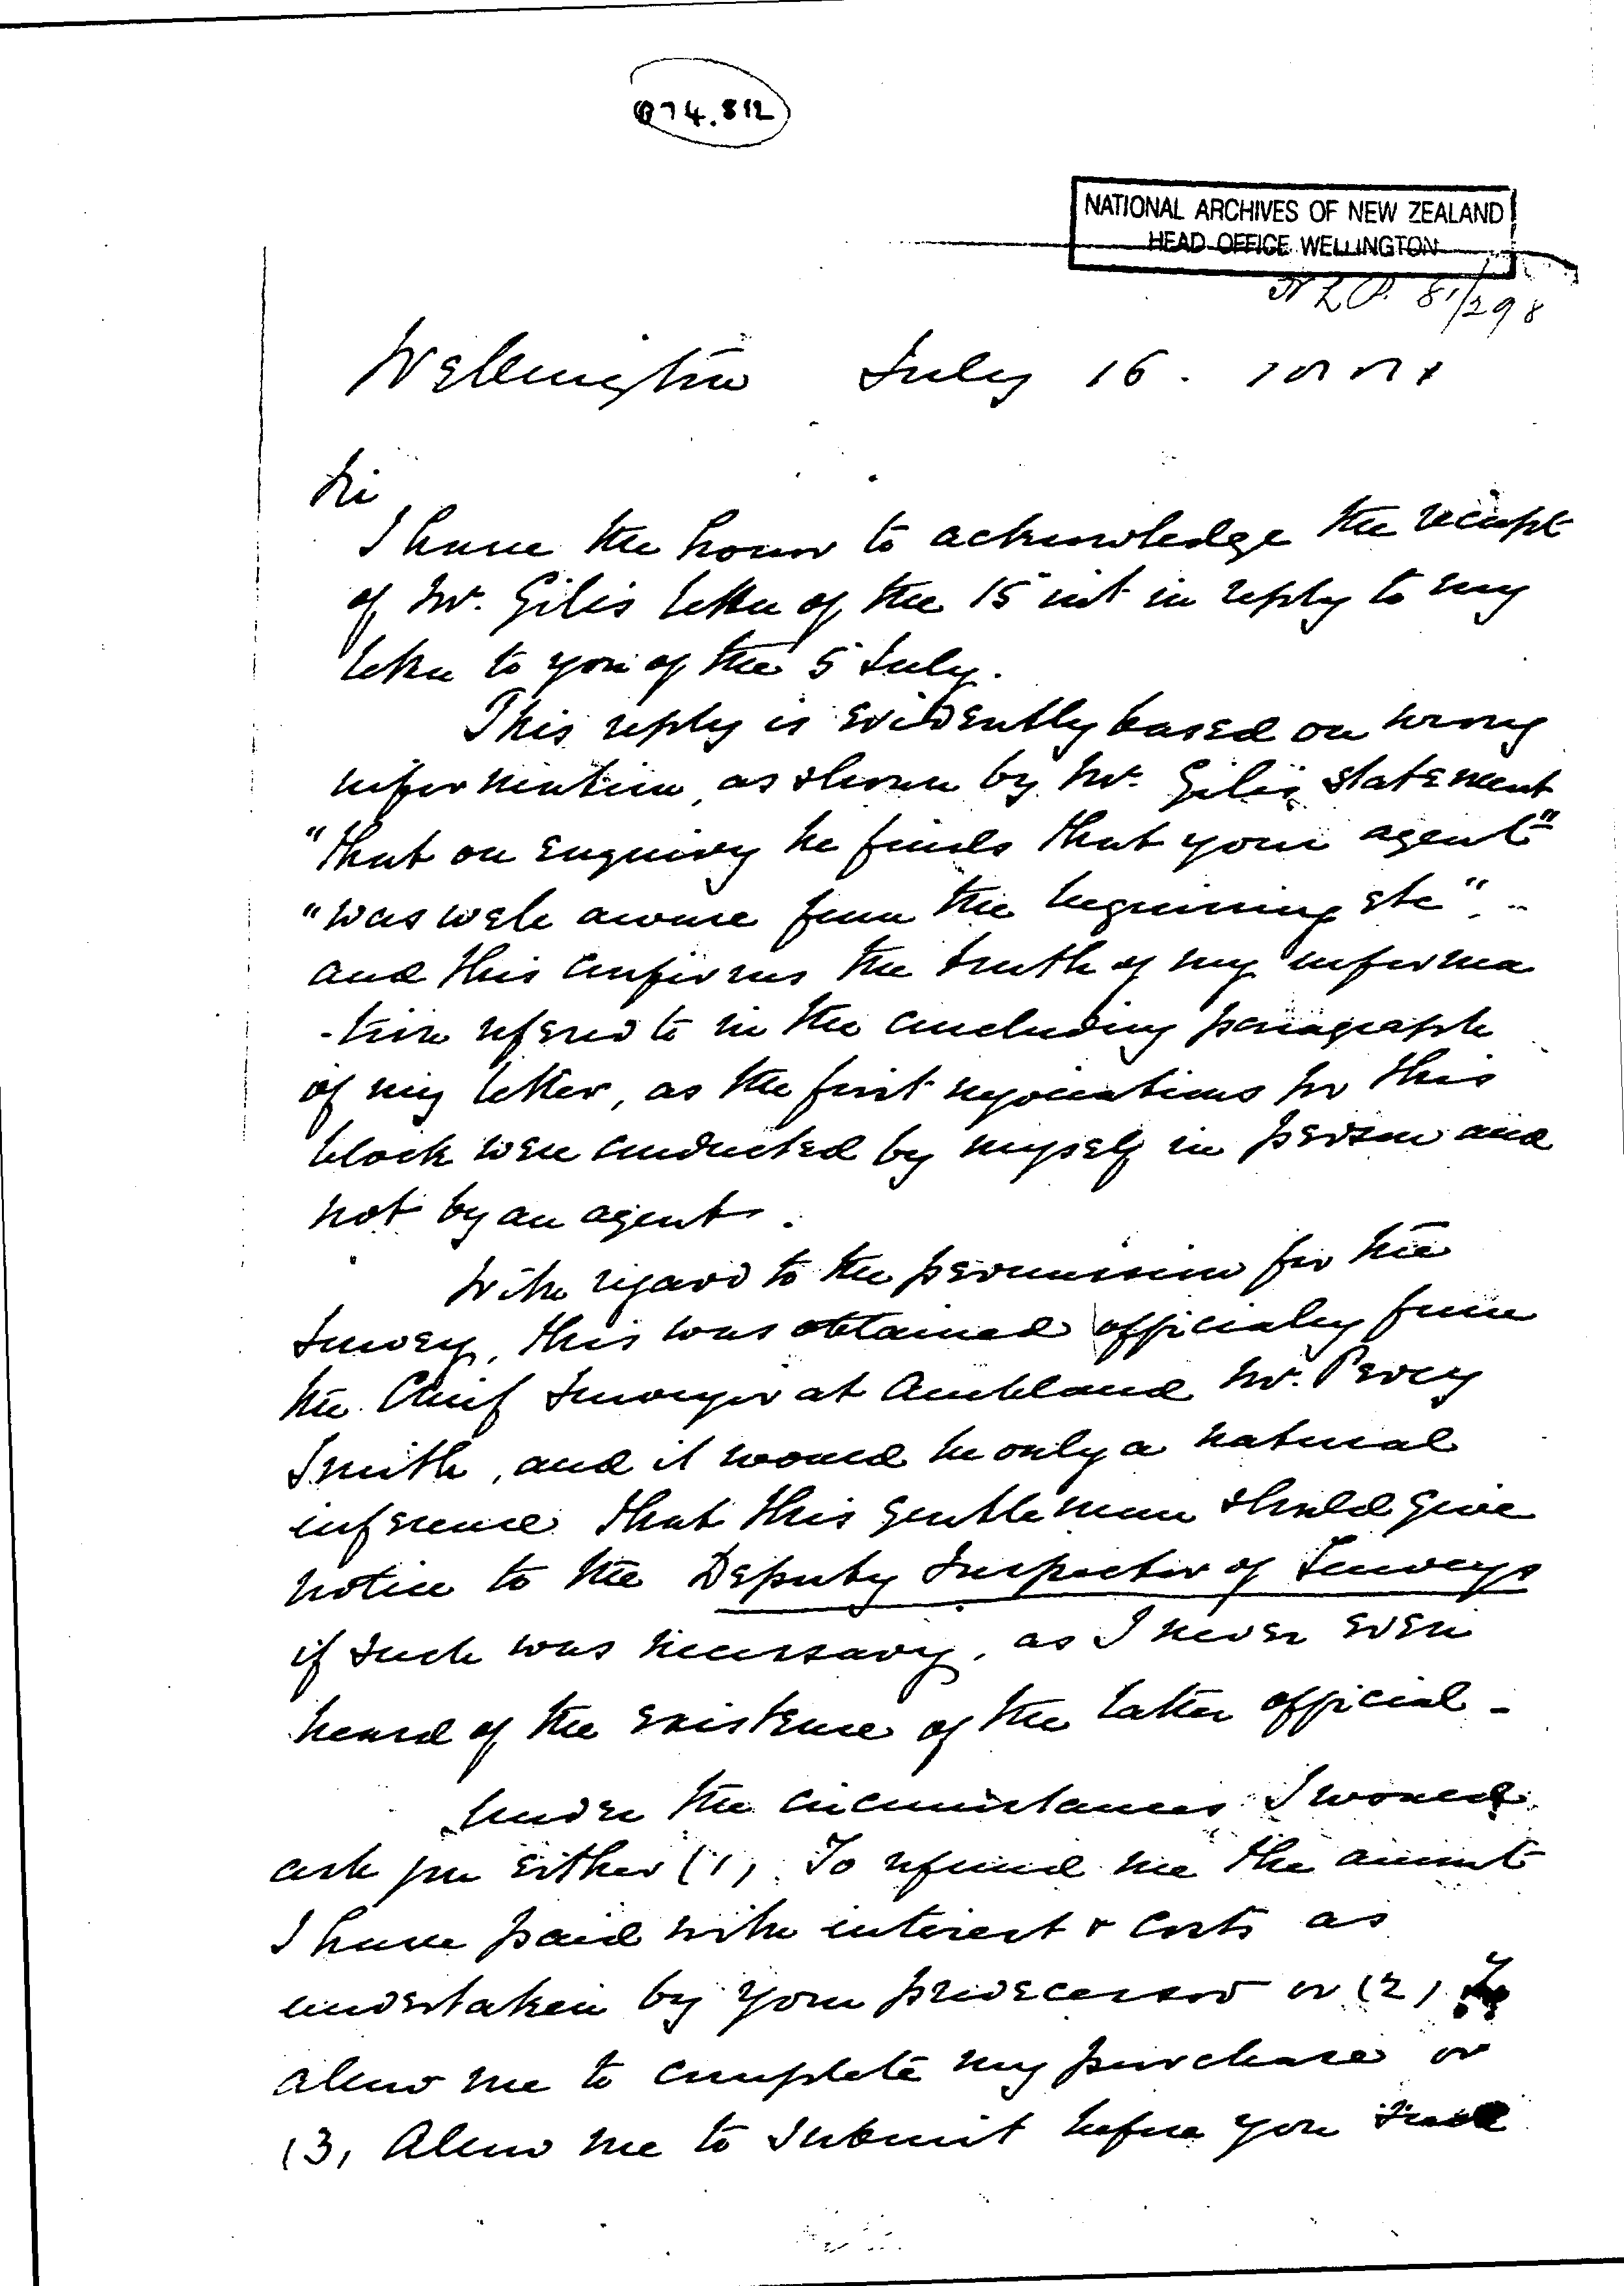 874.812
NATIONAL ARCHIVES OF NEW ZEALAND
HEAD OFFICE WELLINGTON
NLP. 81/298
Wellington July 16. 1881
Sir
I have the honor to acknowledge the reciept
of Mr. Gill's letter of the 15 inst in reply to my
letter to you of the 5 July.
This reply is evidently based on wrong
information, as shown by Mr. Gill's statement
"that on enquiry he finds that your agent"
"was well aware from the beginning etc"..
and this confirms the truth of my informa
-tion refered to in the concluding paragraph
of my letter, as the first negociations for this
block were conducted by myself in person and
not by an agent.
With regard to the permission for the
Survey, this was obtained officialy from
the Chief Surveyor at Auckland Mr. Percy
Smith, and it would be only a natural
inference that this gentleman should give
notice to the Deputy Inspector of Surveys
if such was necessary, as I never even
heard of the existence of the latter official -
Under the circumstances I would
ask you either (1) To refund me the amount
I have paid with interest & costs as
undertaken by your predecessor or (2) To
allow me to complete my purchase or
(3) Allow me to submit before you